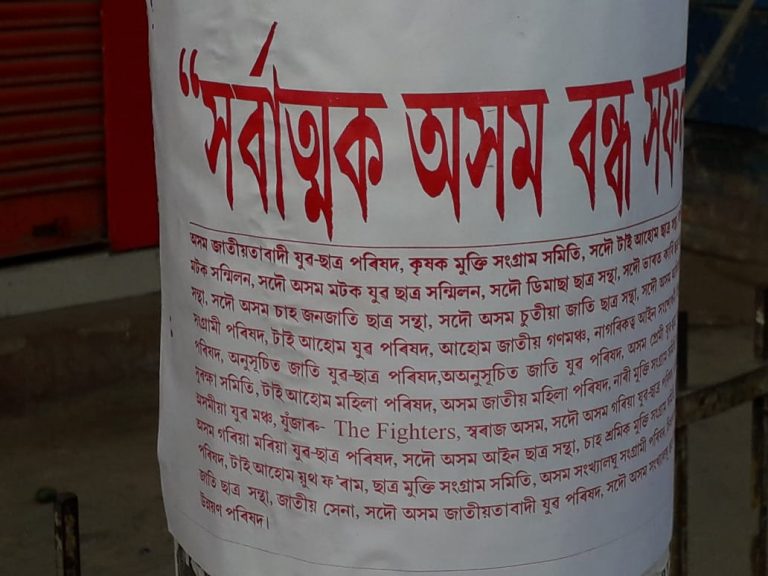 “সৰ্বাত্মক অসম বন্ধ সফল
অসম জাতীয়তাবাদী যুৱ-ছাত্ৰ পৰিষদ, কৃষক মুক্তি সংগ্ৰাম সমিতি, সদৌ টাই আহোম ছাত্ৰ
মটক সন্মিলন, সদৌ অসম মটক যুৱ ছাত্ৰ সন্মিলন, সদৌ ডিমাছা ছাত্ৰ সন্থা, সদৌ ভাৰত কাৰ্বি
সন্থা, সদৌ অসম চাহ জনজাতি ছাত্ৰ সন্থা, সদৌ অসম চুতীয়া জাতি ছাত্ৰ সন্থা, সদৌ অসম
সংগ্ৰামী পৰিষদ, টাই আহোম যুৱ পৰিষদ, আহোম জাতীয় গণমঞ্চ, নাগৰিকত্ব আইন
পৰিষদ, অনুসূচিত জাতি যুৱ-ছাত্ৰ পৰিষদ,অঅনুসূচিত জাতি যুৱ পৰিষদ, অসম প্ৰেমী
সুৰক্ষা সমিতি, টাই আহোম মহিলা পৰিষদ, অসম জাতীয় মহিলা পৰিষদ, নাৰী মুক্তি সংগ্ৰাম
অসমীয়া যুৱ মঞ্চ, যুঁজাৰু- The Fighters, স্বৰাজ অসম, সদৌ অসম গৰিয়া যুৱ-ছাত্ৰ
অসম গৰিয়া মৰিয়া যুৱ-ছাত্ৰ পৰিষদ, সদৌ অসম আইন ছাত্ৰ সন্থা, চাহ শ্ৰমিক মুক্তি সংগ্ৰাম
পৰিষদ, টাই আহোম য়ুথ ফ'ৰাম, ছাত্ৰ মুক্তি সংগ্ৰাম সমিতি, অসম সংখ্যালঘু সংগ্ৰামী পৰিষদ,
জাতি ছাত্ৰ সন্থা, জাতীয় সেনা, সদৌ অসম জাতীয়তাবাদী যুৱ পৰিষদ, সদৌ অসম সংখ্যালঘু
উন্নয়ণ পৰিষদ।